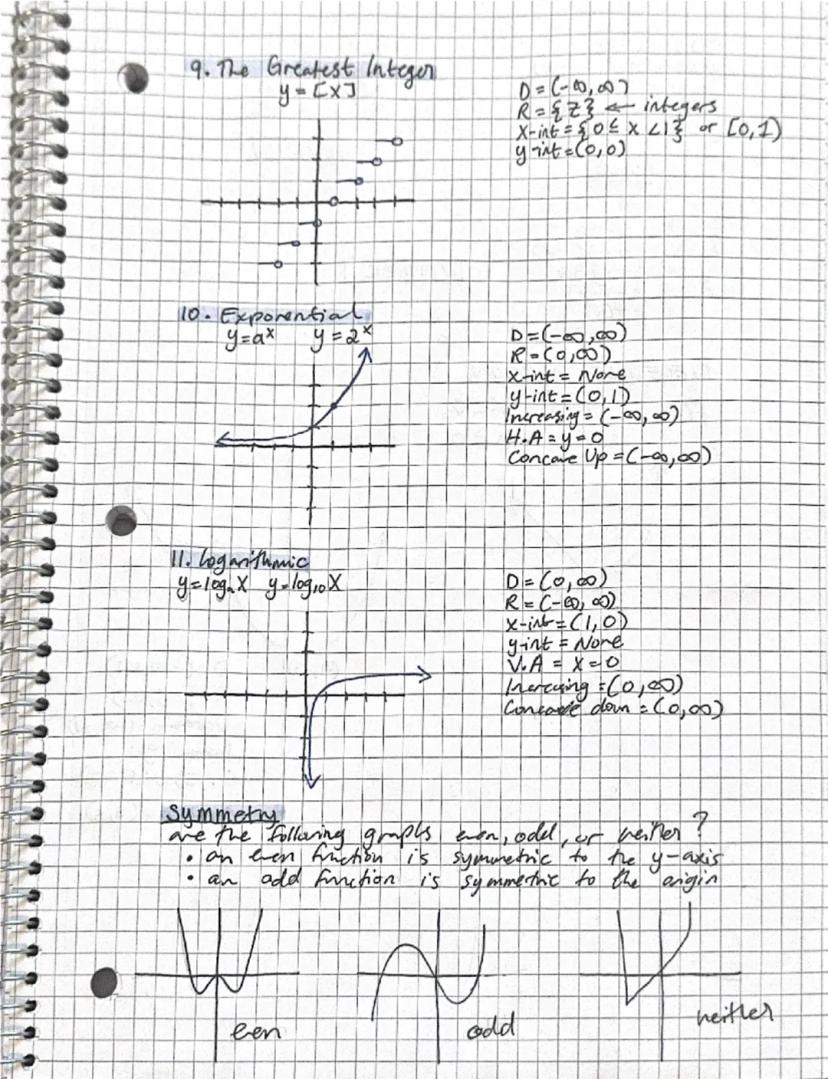 9. The Greatest Integer
y = [x]
D = (-∞,∞)
R = {Z} ← integers
x-int = {0 ≤ x < 1} or [0,1)
y-int = (0,0)
10. Exponential
y = aˣ y = 2ˣ
D = (-∞,∞)
R = (0,∞)
x-int = None
y-int = (0,1)
Increasing = (-∞,∞)
H.A = y = 0
Concave Up = (-∞,∞)
11. logarithmic
y = logₐX y = log₁₀X
D = (0,∞)
R = (-∞,∞)
x-int = (1,0)
y-int = None
V.A = X = 0
Increasing = (0,∞)
Concave down = (0,∞)
Symmetry
are the following graphs even, odd, or neither?
• an even function is symmetric to the y-axis
• an odd function is symmetric to the origin
even odd neither